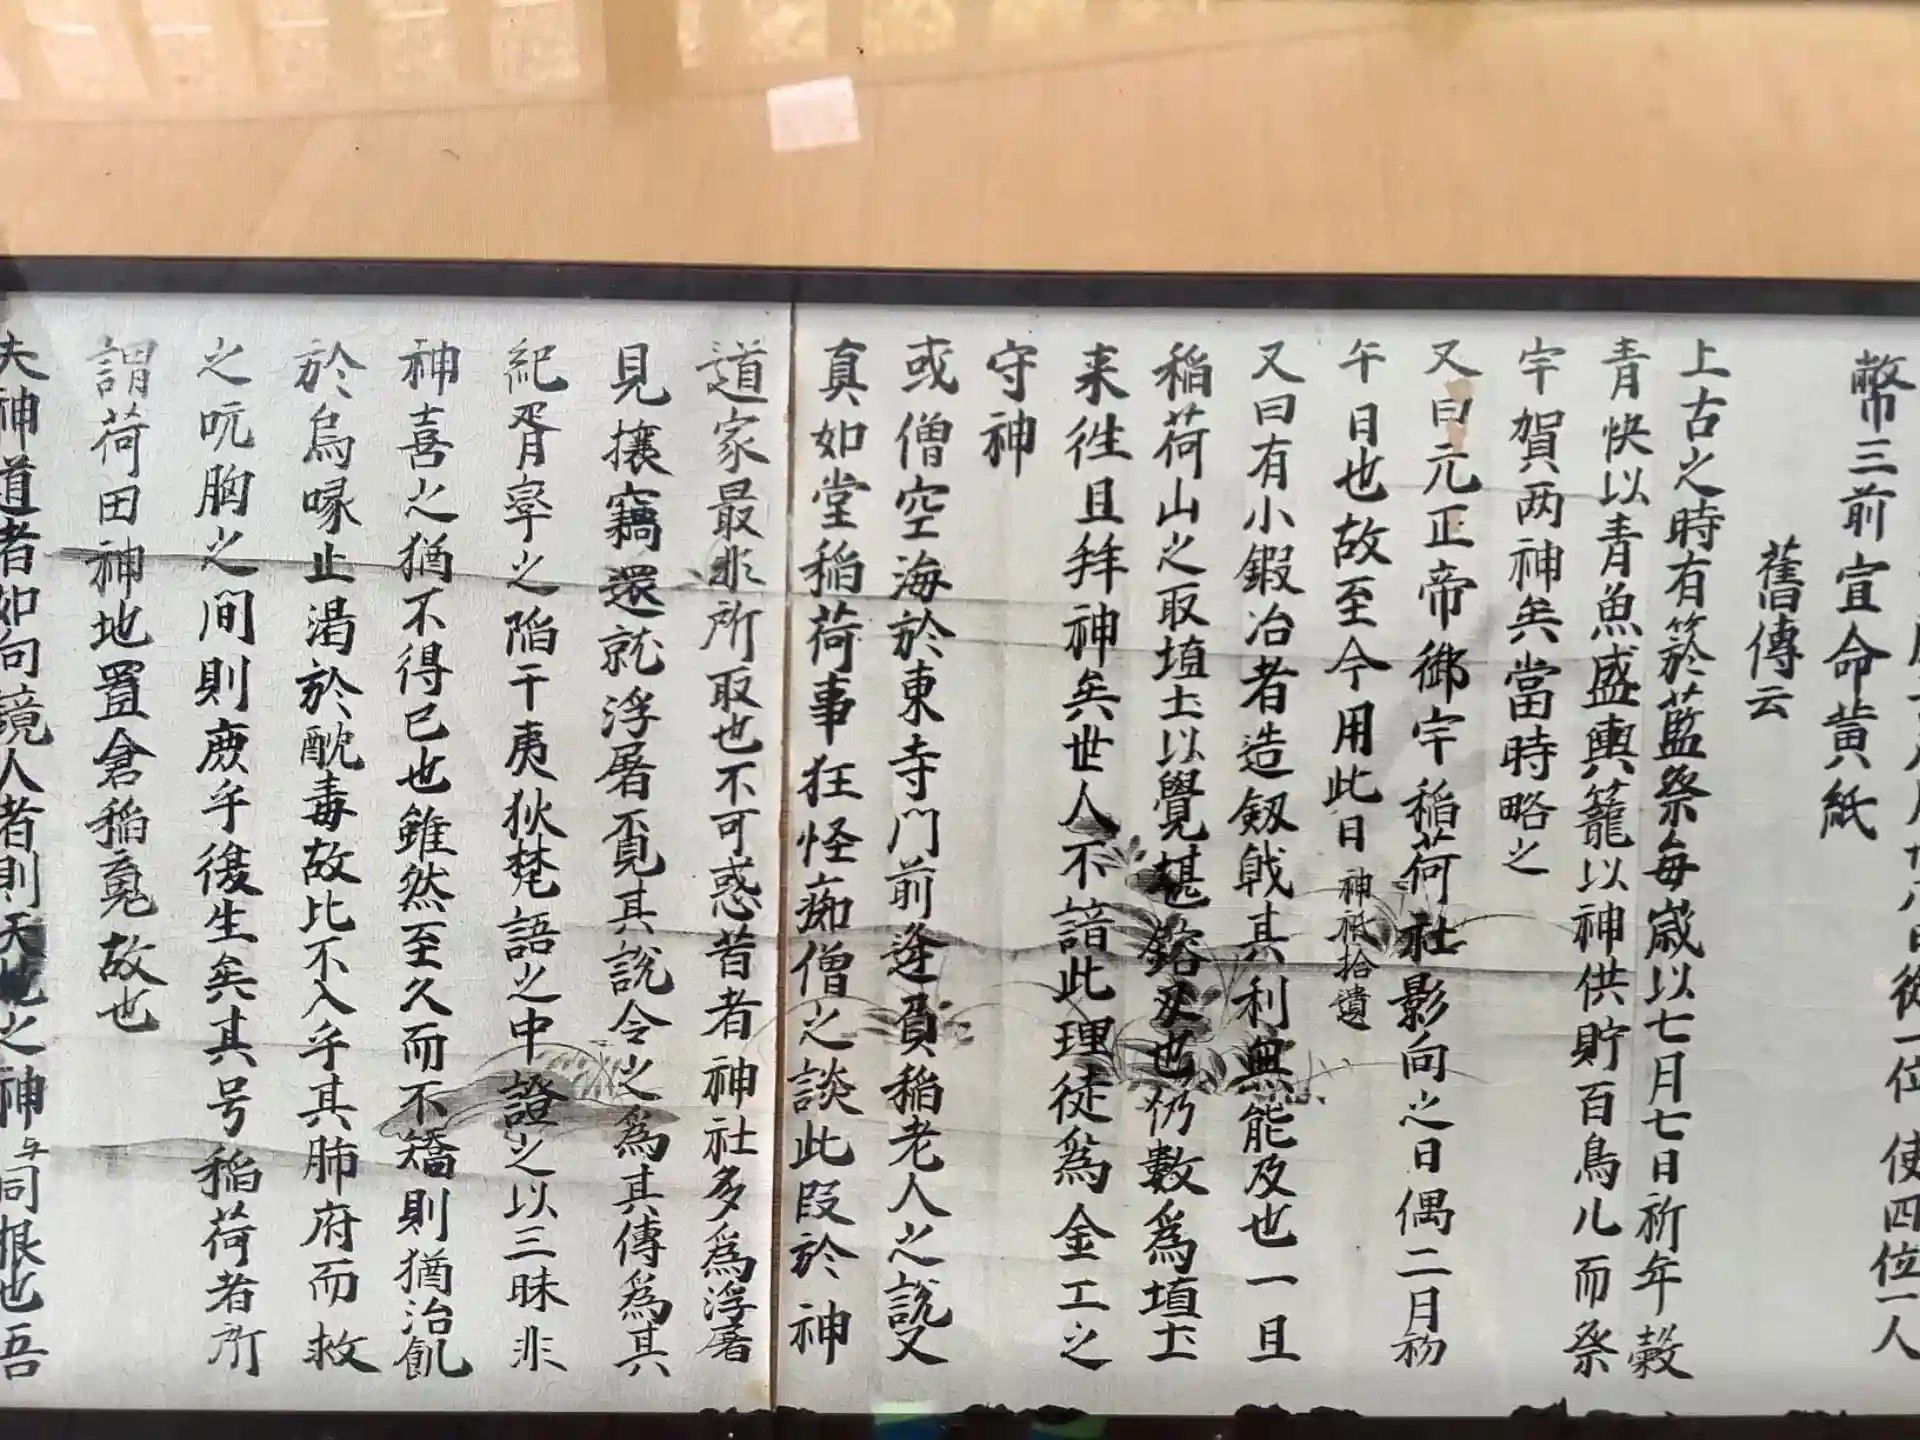 八日從一位使四位一人
幣三前宣命黄紙
舊傳云
上古之時有於藍祭每歳以七月七日祈年穀
青快以青魚盛輿籠以神供貯百鳥儿而祭
宇賀两神矣當時略之
又曰元正帝御宇稲荷社影向之日偶二月初
午日也故至今用此日神祇拾遺
又曰有小鍜冶者造釼戟其利無能及也一旦
稲荷山之取埴土以覺甚鎔刃也仍數為埴土
来徃且拜神矣世人不諳此理徒為金工之
守神
或僧空海於東寺門前逢負稲老人之説又
真如堂稲荷事狂怪痴僧之談此段於神
道家最非所取也不可惑昔者神社多為浮屠
見攘竊還就浮屠覓其説令之為其傳為其
紀胥宰之陥干夷狄梵語之中證之以三昧非
神喜之猶不得已也雖然至久而不矯則猶治飢
於烏喙止渇於酖毒故比不入乎其肺府而救
之吭胸之間則庶乎復生矣其号稲荷者所
謂荷田神地置倉稲䰟故也
夫神道者如向鏡人者則天地之神与同根也吾